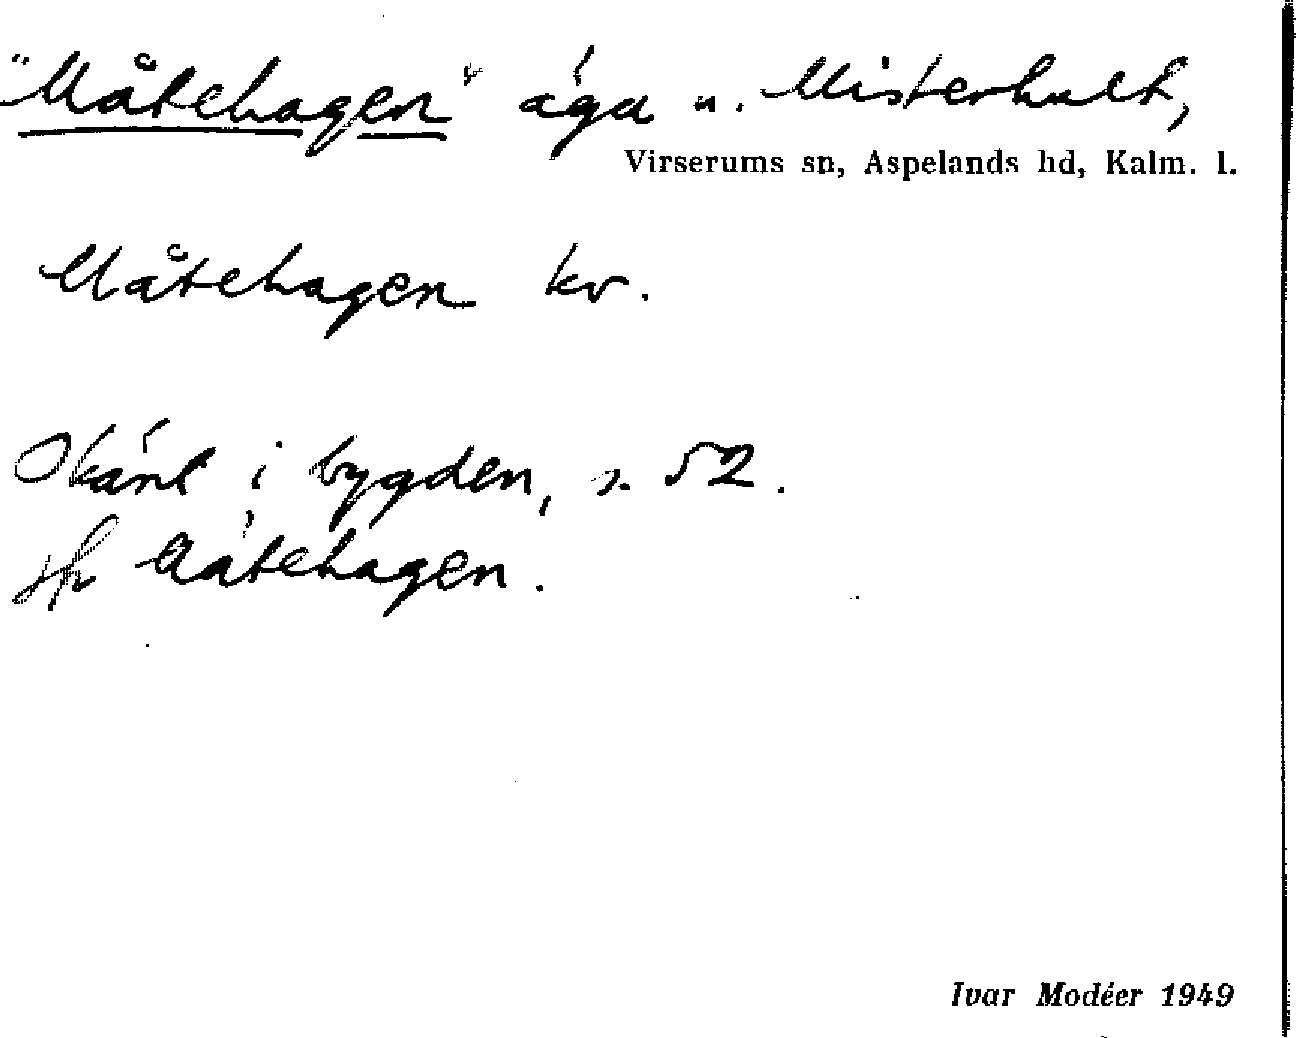 "Måtehagen" äga u. Misterhult,
Virserums sn, Aspelands hd, Kalm. l.
Måtehagen kv.
Okänt i bygden, s. 52.
Måtehagen.
Ivar Modéer 1949